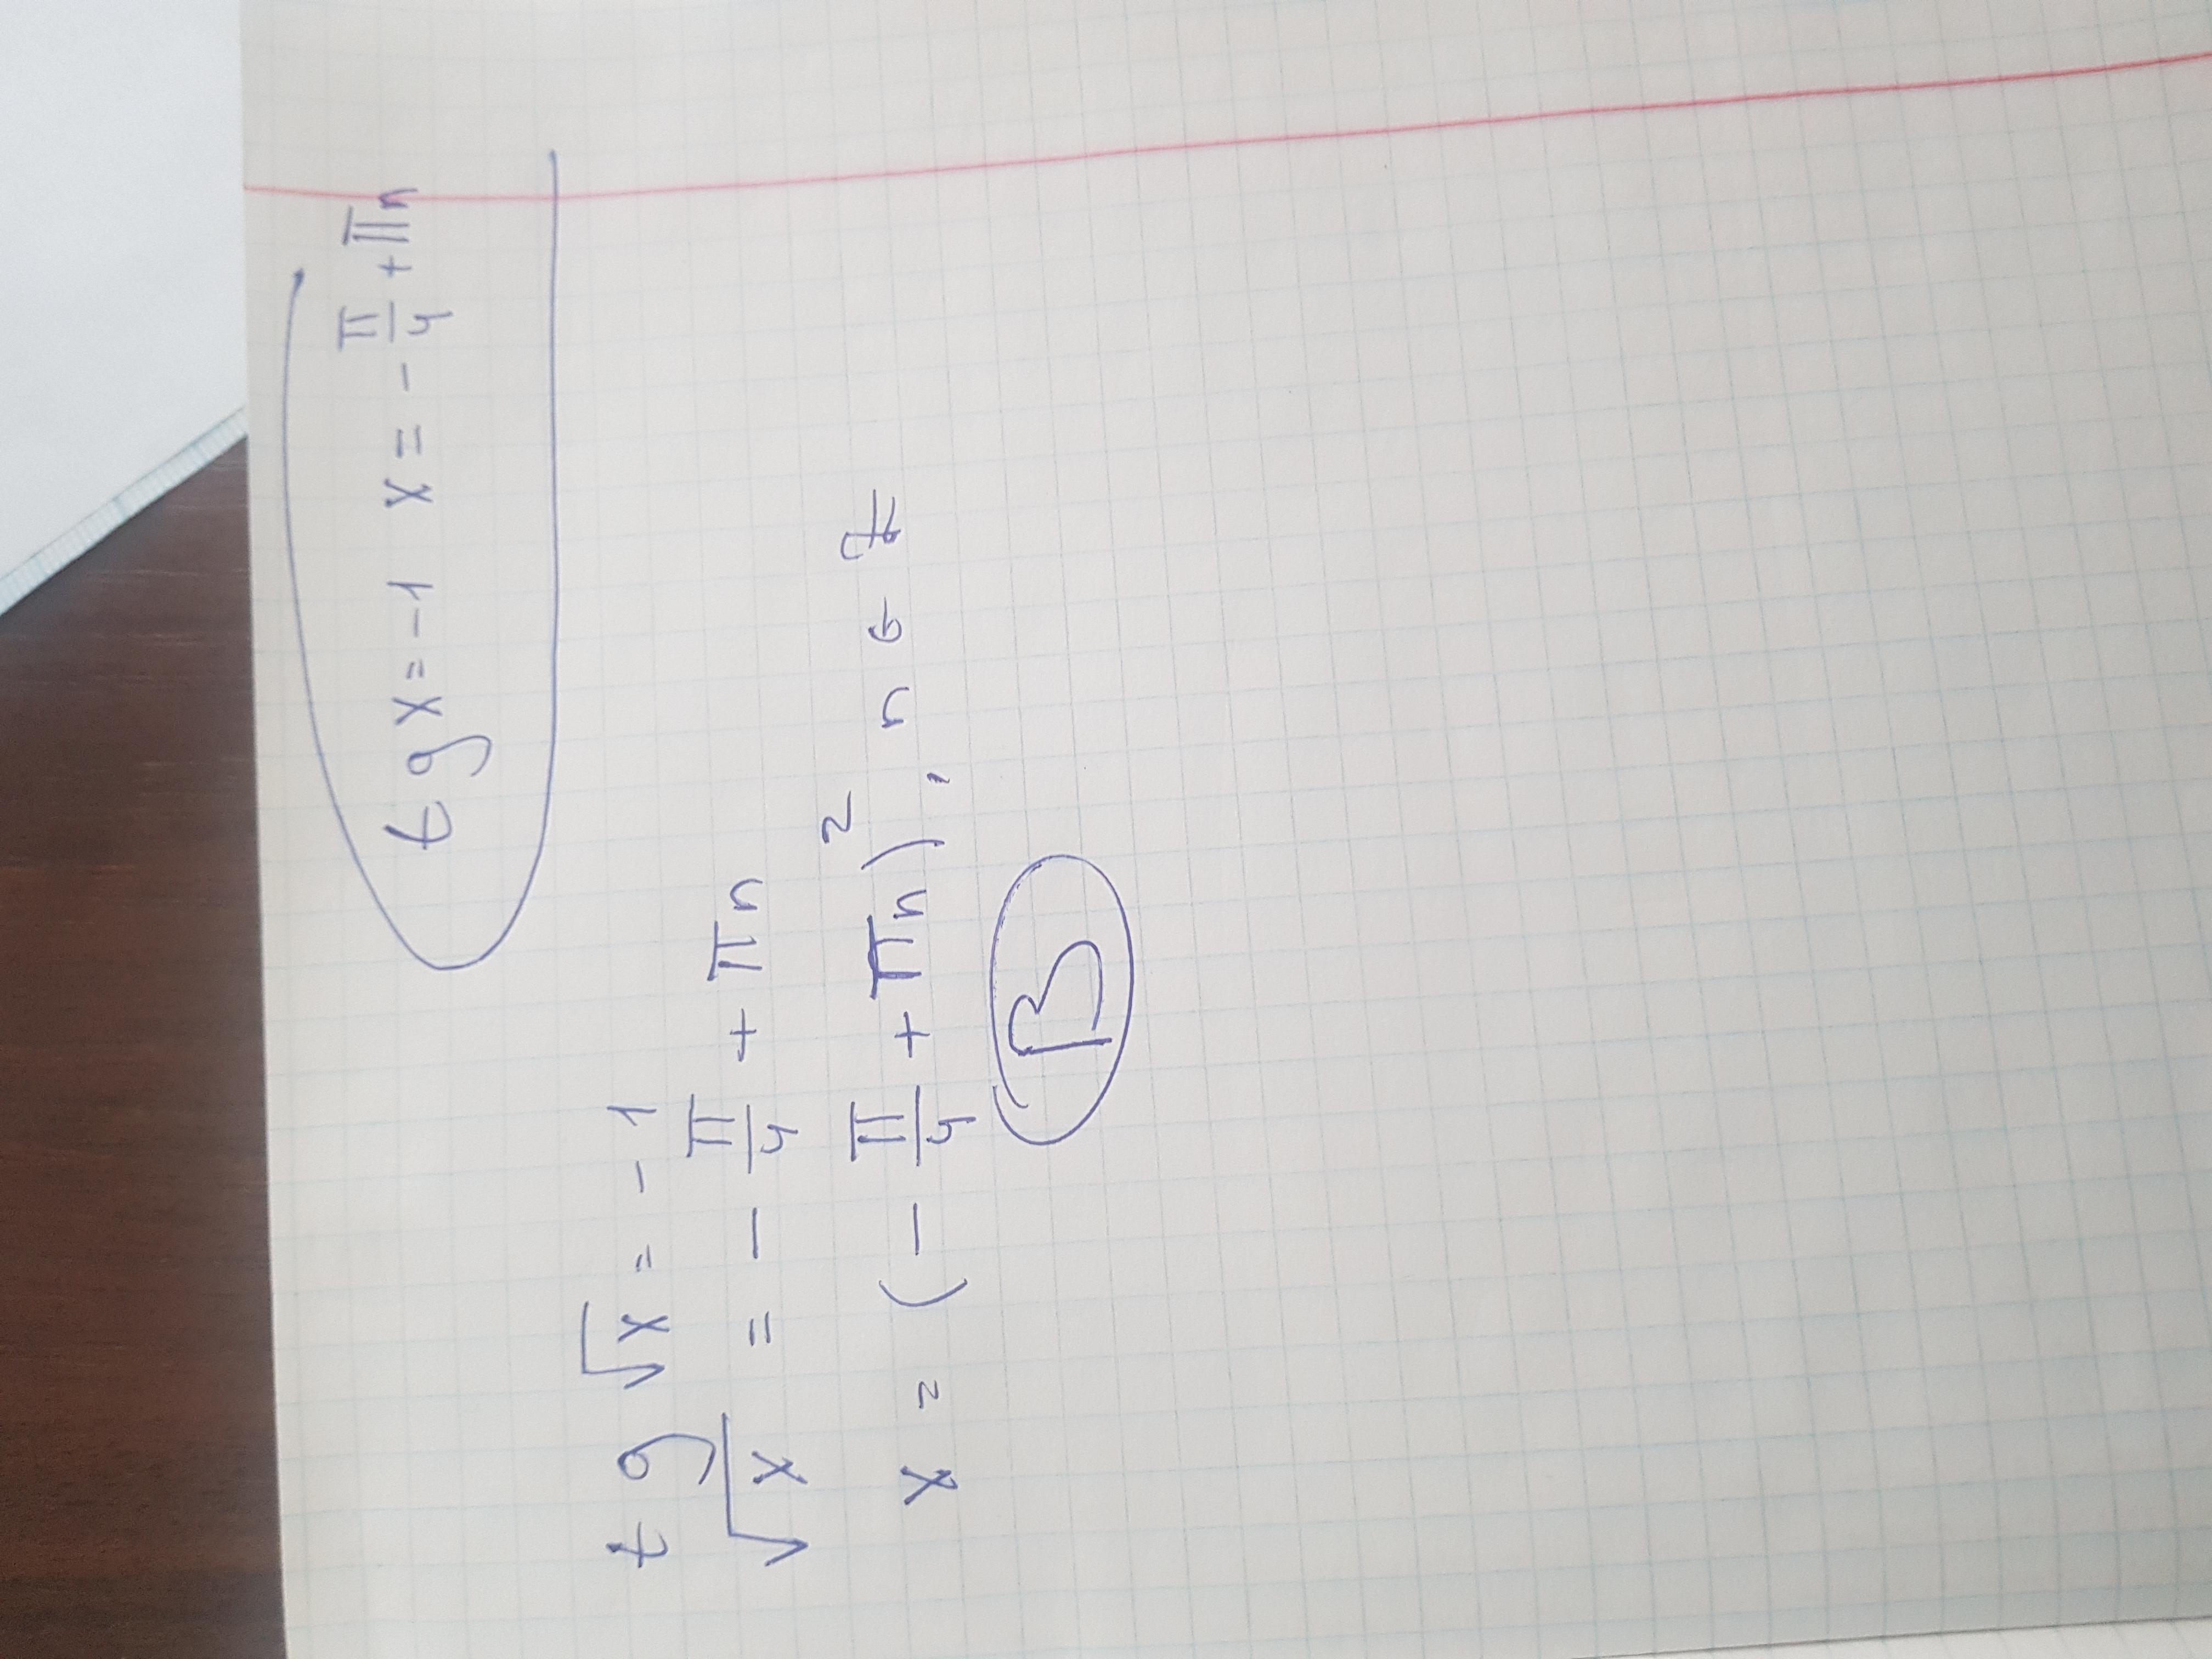 tg x = -1 x = - π/4 + πn
tg √x = -1
√x = - π/4 + πn
x = (- π/4 + πn)², n ∈ Z
B